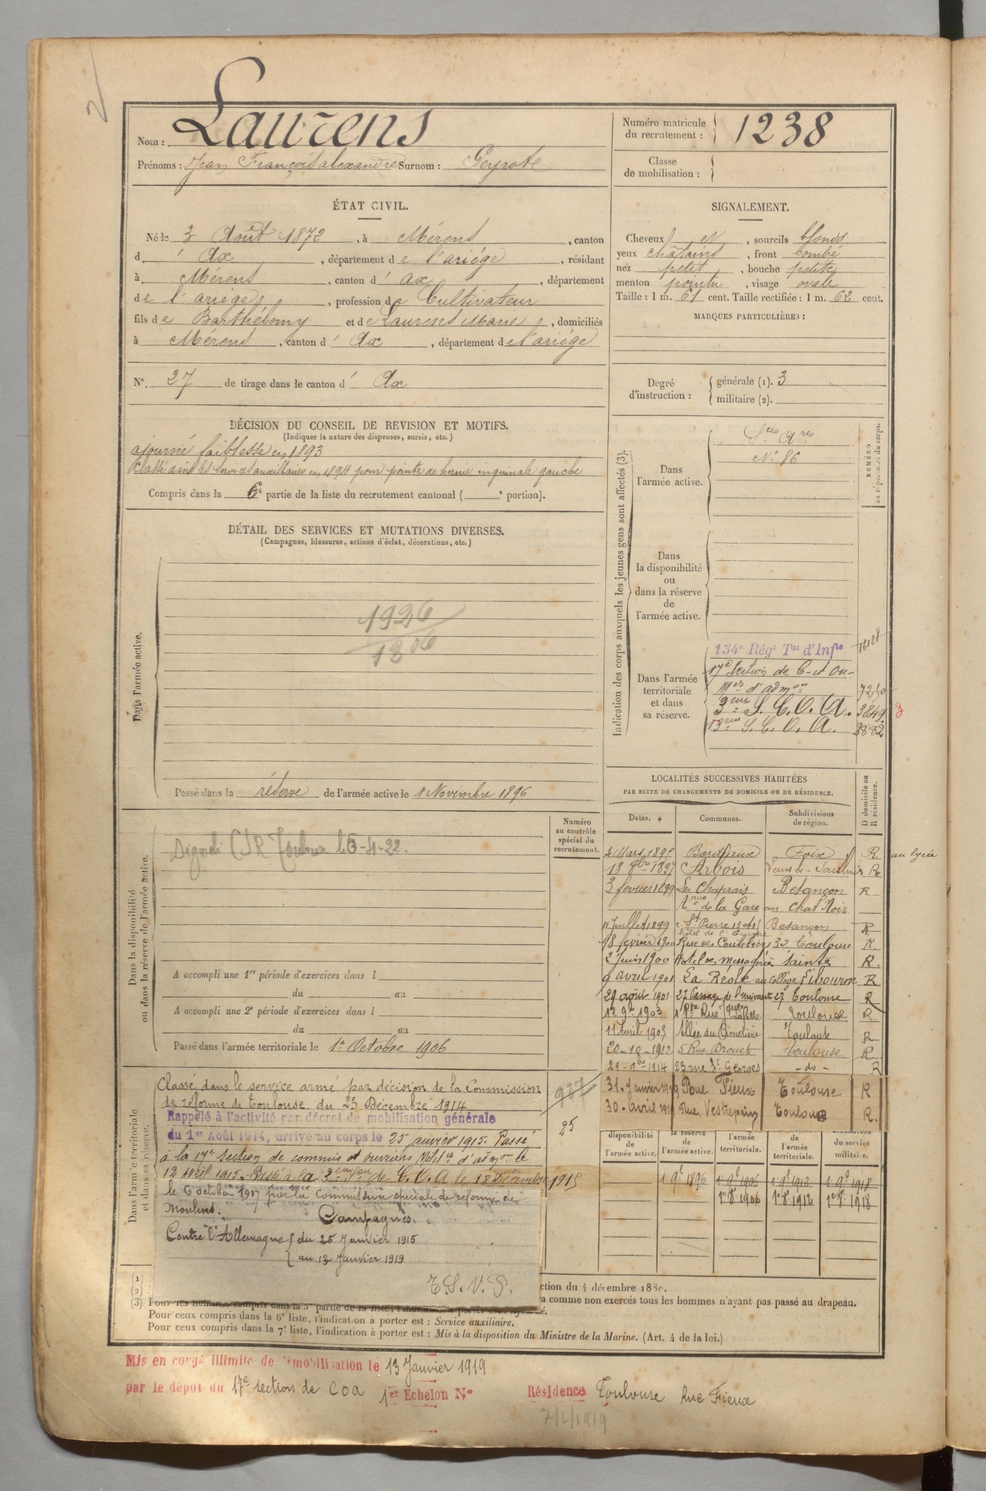 Nom : Laurens
Prénoms : Jean François alexandre Surnom : Peyrote
Numéro matricule du recrutement : 1238
Classe de mobilisation :
ÉTAT CIVIL.
Né le 3 Août 1872, à Mérens, canton
d' Ax, département de l'ariège, résidant
à Mérens, canton d' ax, département
de l'ariège, profession de Cultivateur
fils de Barthélemy et de Laurens Marie, domiciliés
à Mérens, canton d' Ax, département de l'ariège
N° 27 de tirage dans le canton d' Ax
SIGNALEMENT.
Cheveux et, sourcils blonds
yeux châtains, front bombé
nez petit, bouche petite
menton pointu, visage ovale
Taille : 1 m. 61 cent. Taille rectifiée : 1 m. 62 cent.
MARQUES PARTICULIÈRES :
Degré d'instruction : générale (1). 3
militaire (2).
DÉCISION DU CONSEIL DE REVISION ET MOTIFS.
(Indiquer la nature des dispenses, sursis, etc.)
ajourné faiblesse en 1893
Classé dans les services auxiliaires en 1894 pour pointe de hernie inguinale gauche
Compris dans la 6e partie de la liste du recrutement cantonal ( e portion).
DÉTAIL DES SERVICES ET MUTATIONS DIVERSES.
(Campagnes, blessures, actions d'éclat, décorations, etc.)
Dans l'armée active.
1926
1306
Passé dans la réserve de l'armée active le 1 Novembre 1896
Indication des corps auxquels les jeunes gens sont affectés (3).
NUMÉRO au répertoire du corps.
Dans l'armée active.
N° 86
Dans la disponibilité ou dans la réserve de l'armée active.
Dans l'armée territoriale et dans sa réserve.
134e Régt Tal d'Infie
17e Section de C- et Ou-
vriers d'admon
3eme S. C. O. A. 3849
13eme S. C. O. A. 3882
LOCALITÉS SUCCESSIVES HABITÉES
PAR SUITE DE CHANGEMENTS DE DOMICILE OU DE RÉSIDENCE.
Dates. Communes. Subdivisions de région. D domicile ou R résidence.
Bordeaux Foix R au lycée
Arbois R
3 février 1899 Les Chaprais Besançon R
rue de la Gare au Chat Noir
11 Juillet 1899 St Pierre Besançon R
18 février 1900 Rue des Couteliers 32 Toulouse R
2 Juin 1900 Hotel des messageries Saintes R.
9 avril 1901 La Réole au Collège Libourne R
29 août 1901 27 Toulouse R
1903 Toulouse R
11 avril 1905 Allée du Cimetière Toulouse R
20-10-1912 5 Rue Drouet Toulouse R
1914 23 rue St Georges -do- R
31. Janvier 1919 Rue Fieux Toulouse R
30. avril 1919 Rue Vestrepain Toulouse R.
Dans la disponibilité ou dans la réserve de l'armée active.
Numéro au contrôle spécial du recrutement.
A accompli une 1re période d'exercices dans l
du au
A accompli une 2e période d'exercices dans l
du au
Passé dans l'armée territoriale le 1er Octobre 1906
Dans l'armée territoriale et dans sa réserve.
Classé dans le service armé par décision de la Commission
de réforme de Toulouse du 23 Décembre 1914
Rappelé à l'activité par décret de mobilisation générale
du 1er Août 1914, arrivé au corps le 25 janvier 1915. Passé
à la 17e section de commis et ouvriers Milres d'admon le
12 avril 1915. Passé à la
le 6 octobre 1917 par la Commission spéciale de réforme de
Moulins.
Campagnes.
Contre l'Allemagne du 25 Janvier 1915
au 13 Janvier 1919
T. S. V. P.
25
disponibilité de l'armée active. la réserve de l'armée active. l'armée territoriale. de l'armée territoriale. du service militaire.
1 9e 1896 1 9e 1906 1 9e 1912 1 9e 1918
1er 8e 1906 1er 8e 1912 1er 8e 1918
ction du 4 décembre 1889.
a comme non exercés tous les hommes n'ayant pas passé au drapeau.
Pour ceux compris dans la 6e liste, l'indication à porter est : Service auxiliaire.
Pour ceux compris dans la 7e liste, l'indication à porter est : Mis à la disposition du Ministre de la Marine. (Art. 4 de la loi.)
Mis en congé illimité de démobilisation le 13 Janvier 1919
par le dépôt du 17e section de COA 1er Échelon N°
Résidence Toulouse Rue Fieux
7/2/1919